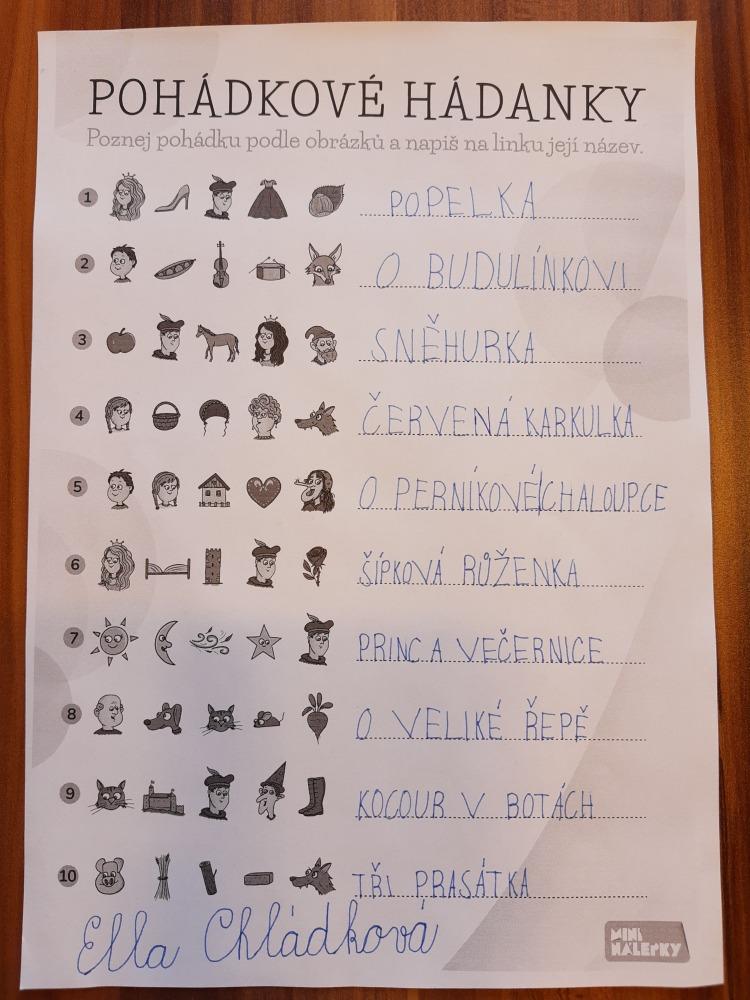 POHÁDKOVÉ HÁDANKY
Poznej pohádku podle obrázků a napiš na linku její název.
1 POPELKA
2 O BUDULÍNKOVI
3 SNĚHURKA
4 ČERVENÁ KARKULKA
5 O PERNÍKOVÉ CHALOUPCE
6 ŠÍPKOVÁ RŮŽENKA
7 PRINC A VEČERNICE
8 O VELIKÉ ŘEPĚ
9 KOCOUR V BOTÁCH
10 TŘI PRASÁTKA
Ella Chládková
MINI
NÁLEPKY